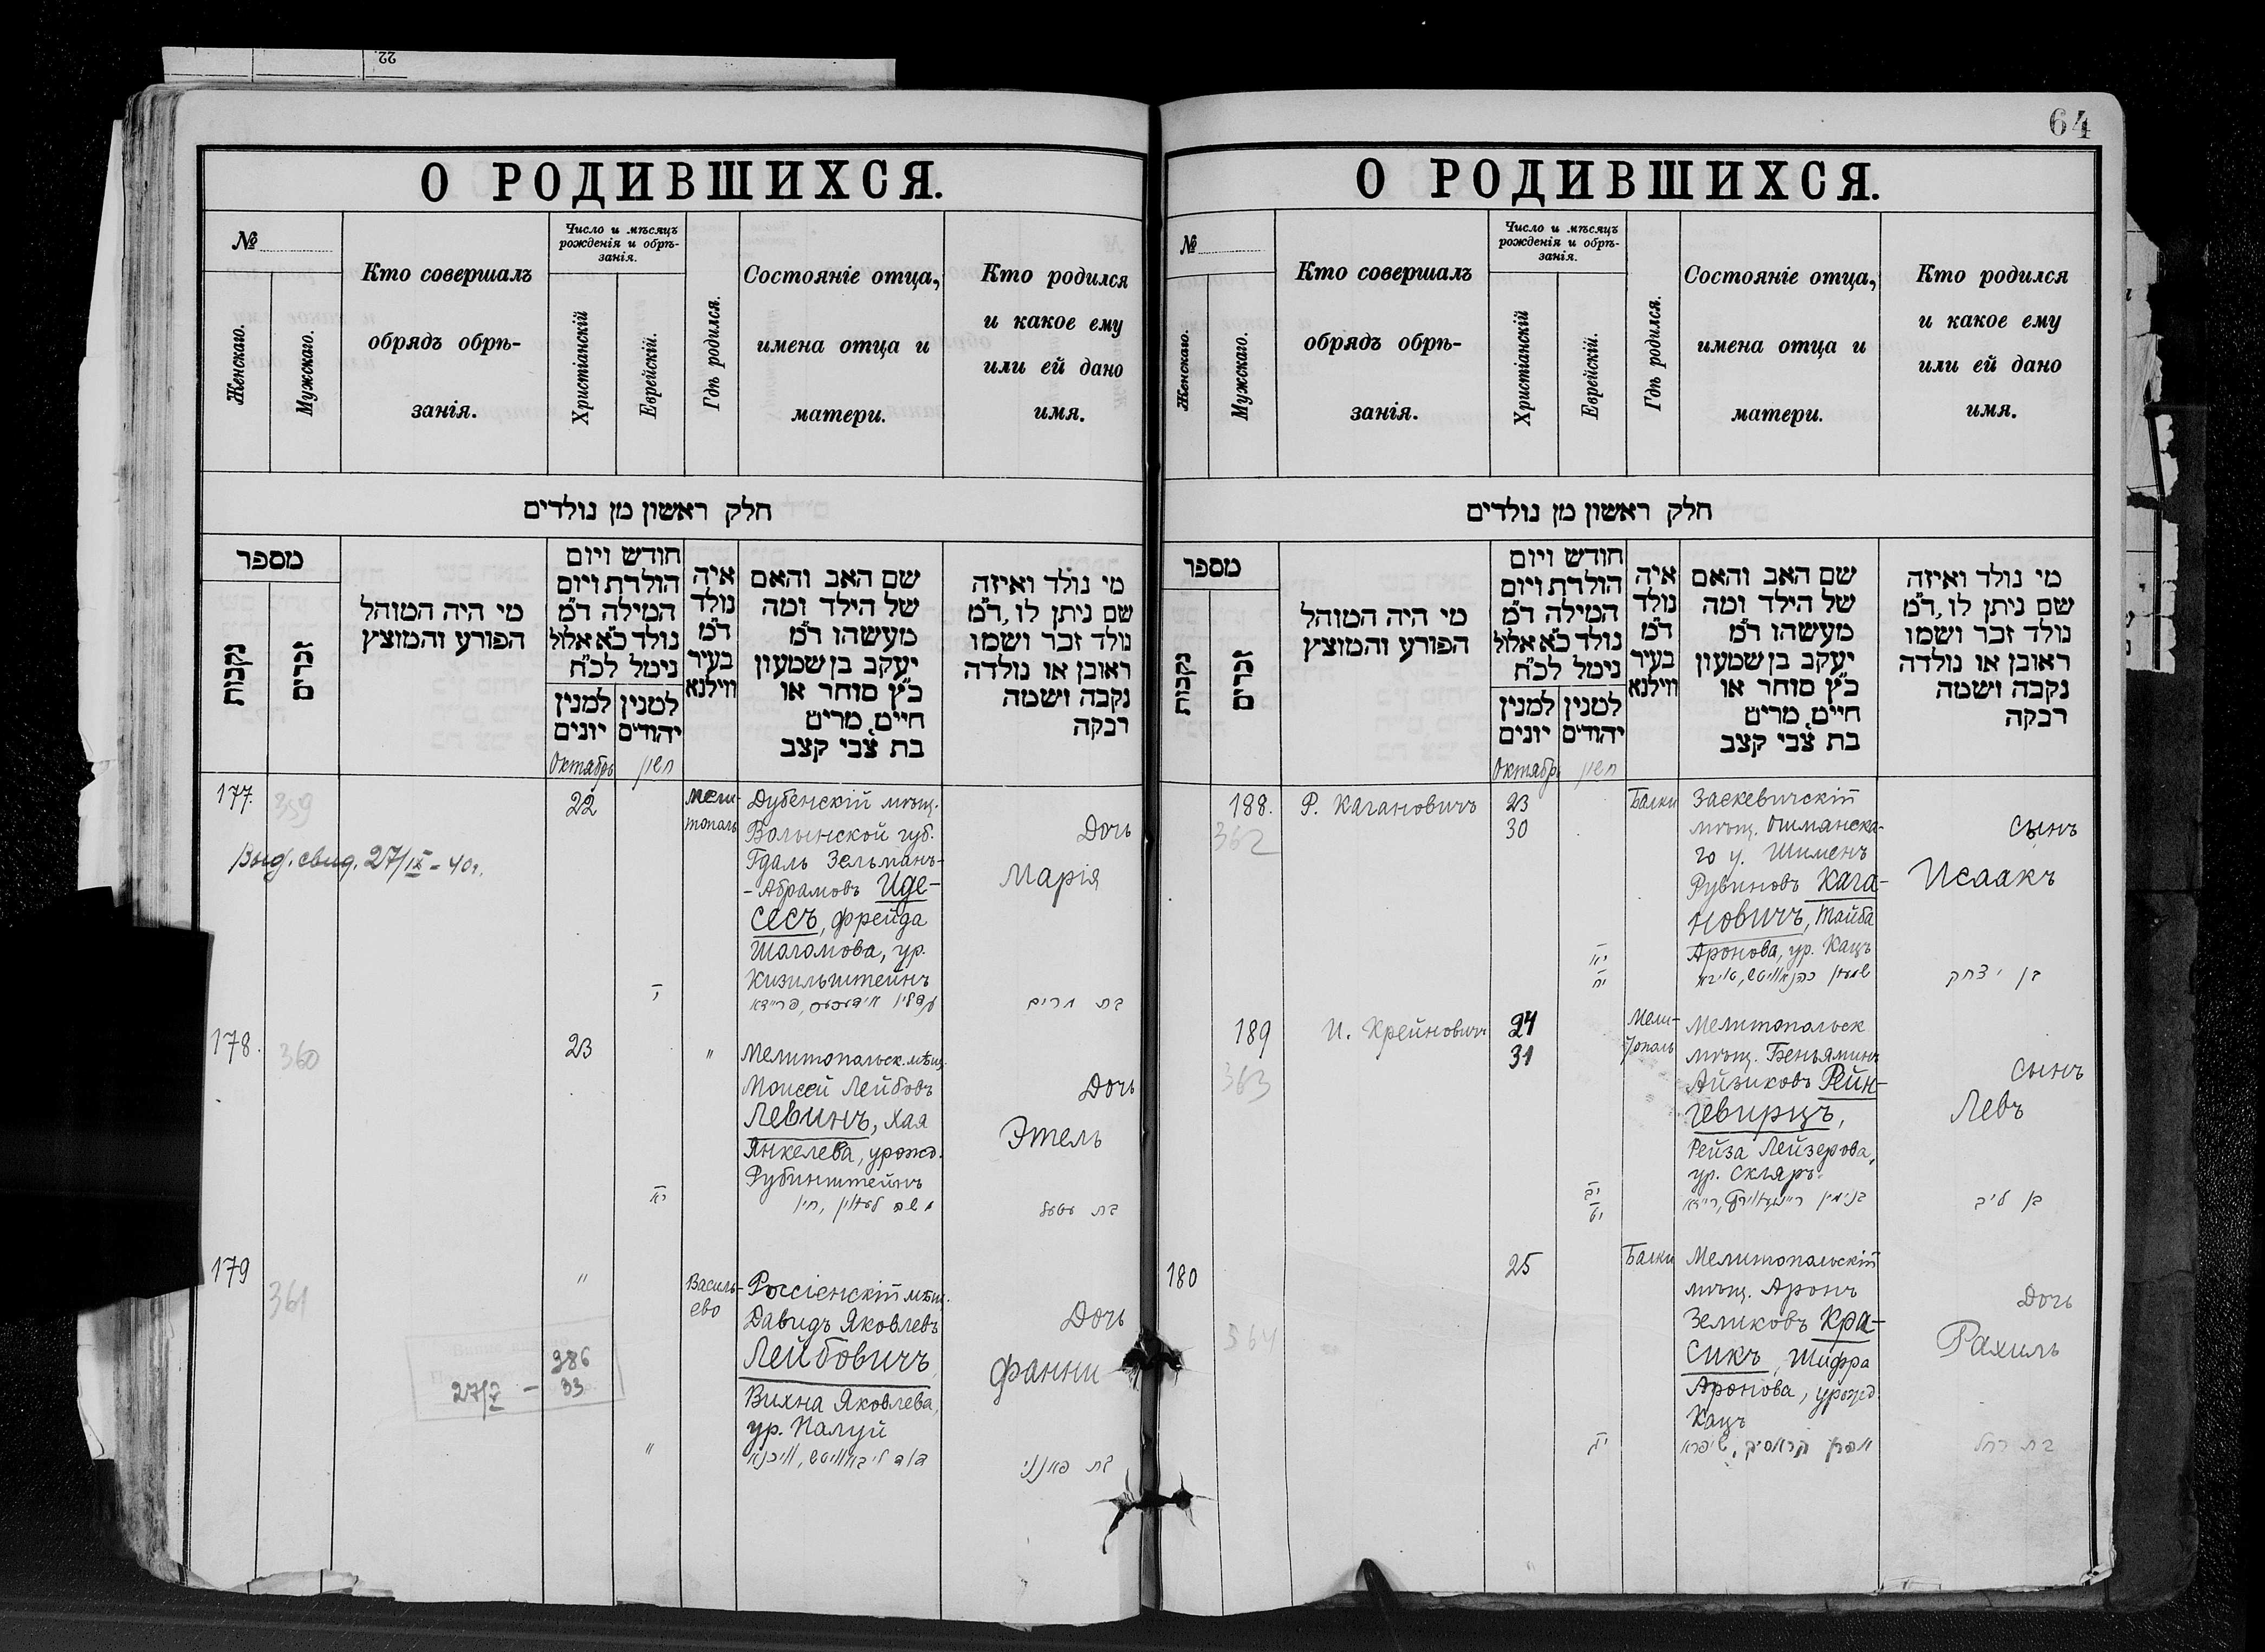 22.
64
О РОДИВШИХСЯ.
№
Женскаго.
Мужскаго.
Кто совершалъ
обрядъ обрѣ-
занія.
Число и мѣсяцъ
рожденія и обрѣ-
занія.
Христіанскій
Еврейскій.
Гдѣ родился.
Состояніе отца,
имена отца и
матери.
Кто родился
и какое ему
или ей дано
имя.
חלק ראשון מן נולדים
מספר
נקבות
זכרים
מי היה המוהל
הפורע והמוצץ
חודש ויום
הולדת ויום
המילה ד״מ
נולד כ״א אלול
נימל לכ״ח
למנין
יונים
למנין
יהודים
איה
נולד
ד״מ
בעיר
ווילנא
שם האב והאם
של הילד ומה
מעשהו ד״מ
יעקב בן שמעון
כ״ץ סוחר או
חיים, מרים
בת צבי קצב
מי נולד ואיזה
שם ניתן לו, ד״מ
נולד זכר ושמו
ראובן או נולדה
נקבה ושמה
רבקה
Октябрь
חשון
177.
359
22
Мели-
тополь
Дубенскій мѣщ.
Волынской губ.
Гдаль Зельманъ-
-Абрамовъ Иде-
сесъ, Фрейда
Шоломова, ур.
Кизильштейнъ
Дочь
Марія
Выд. свид. 27/IX - 40г.
י
בת מרים
178.
360
23
"
Мелитопольск. мѣщ.
Моисей Лейбовъ
Левинъ, Хая
Янкелева, урожд.
Рубинштейнъ
Дочь
Этель
יא
משה לעווין, חיה
בת עטעל
179
361
"
Василь-
ево
Россіенскій мѣщ.
Давидъ Яковлевъ
Лейбовичъ,
Вихна Яковлева,
ур. Палуй
Дочь
Фанни
386
33
"
דוד לייבאוויטש, וויכנא
בת פאנני
О РОДИВШИХСЯ.
№
Женскаго.
Мужскаго.
Кто совершалъ
обрядъ обрѣ-
занія.
Число и мѣсяцъ
рожденія и обрѣ-
занія.
Христіанскій
Еврейскій.
Гдѣ родился.
Состояніе отца,
имена отца и
матери.
Кто родился
и какое ему
или ей дано
имя.
חלק ראשון מן נולדים
מספר
נקבות
זכרים
מי היה המוהל
הפורע והמוצץ
חודש ויום
הולדת ויום
המילה ד״מ
נולד כ״א אלול
נימל לכ״ח
למנין
יונים
למנין
יהודים
איה
נולד
ד״מ
בעיר
ווילנא
שם האב והאם
של הילד ומה
מעשהו ד״מ
יעקב בן שמעון
כ״ץ סוחר או
חיים, מרים
בת צבי קצב
מי נולד ואיזה
שם ניתן לו, ד״מ
נולד זכר ושמו
ראובן או נולדה
נקבה ושמה
רבקה
Октябрь
חשון
188.
362
Р. Кагановичъ
23
30
Балки
Заскевичскій
мѣщ. Ошмянска-
го у. Шименъ
Рувиновъ Кага-
новичъ, Тайба
Аронова, ур. Кацъ
сынъ
Исаакъ
יא
יח
בן יצחק
189
363
И. Крейновичъ
24
31
Мели-
тополь
Мелитопольск
мѣщ. Беньяминъ
Айзиковъ Рейн-
гевирцъ,
Рейза Лейзерова,
ур. Скляръ.
сынъ
Левъ
יב
יט
בן ליב
180
364
25
Балки
Мелитопольскій
мѣщ. Аронъ
Зеликовъ Кра-
сикъ, Шифра
Аронова, урожд.
Кацъ
Дочь
Рахиль
יג
אהרן קראסיק, שיפרא
בת רחל